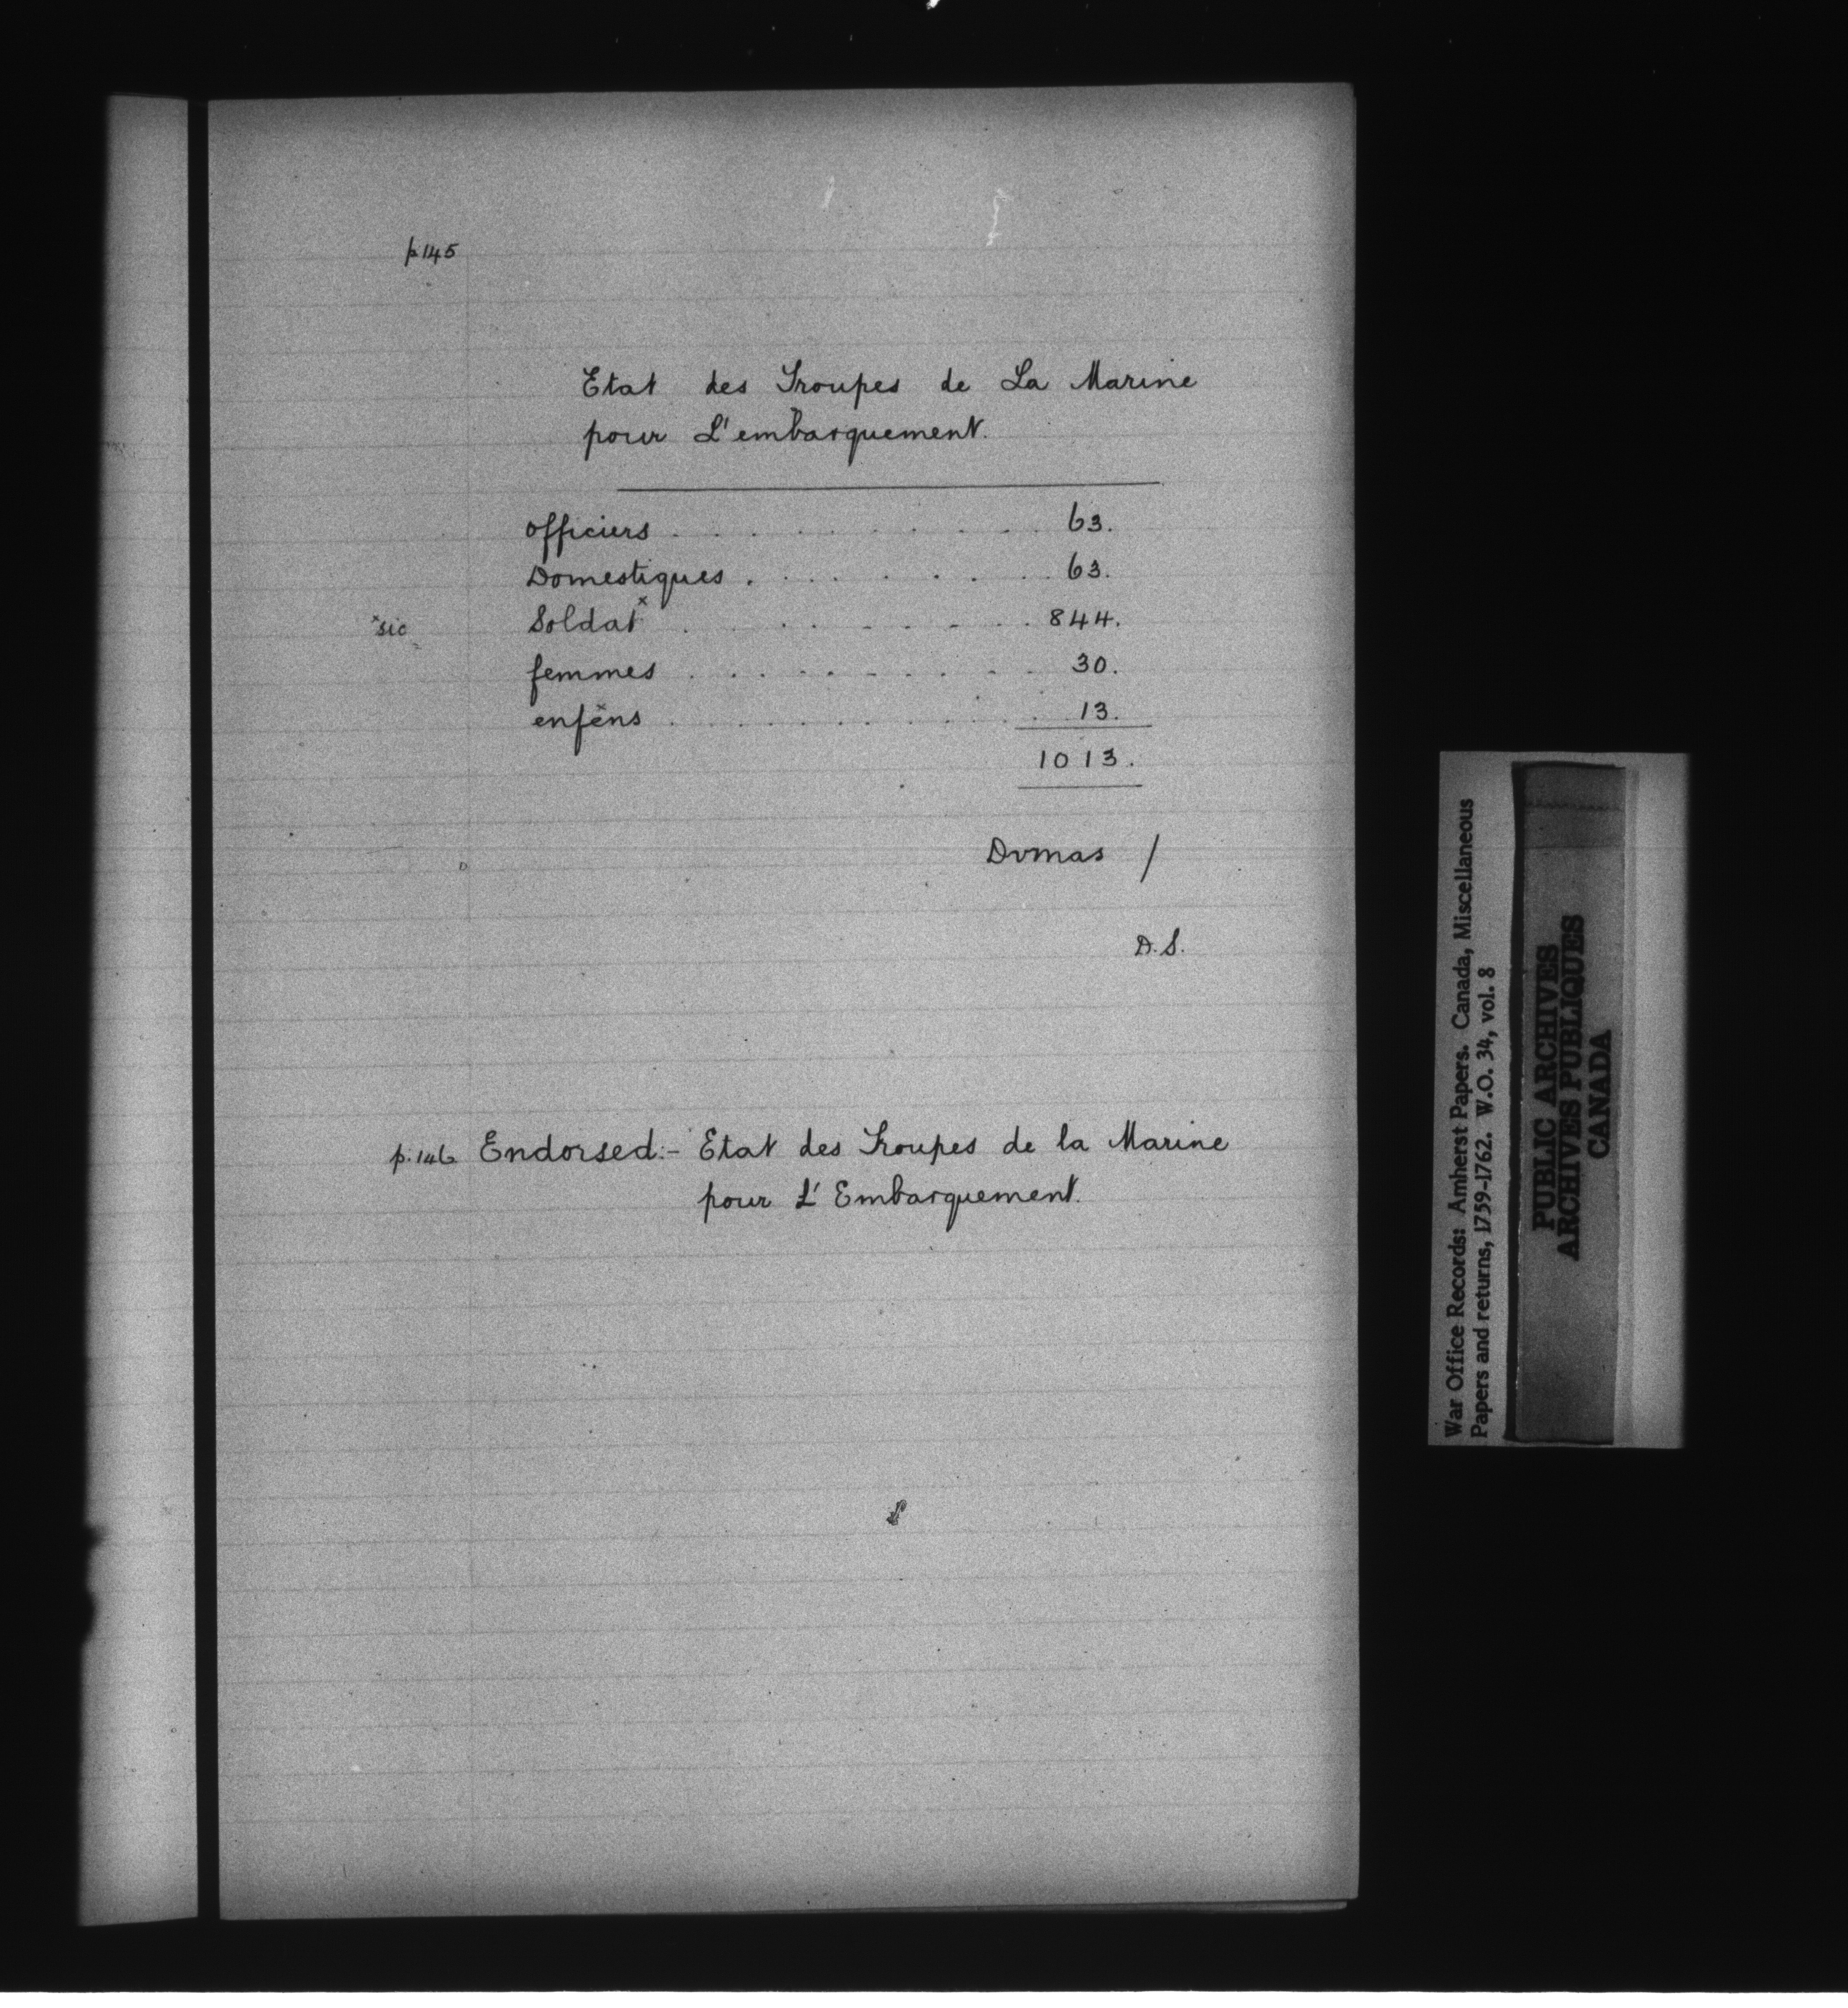 p.145
Etat des Troupes de La Marine
pour L'embarquement.
officiers . . . . . . . . . . 63.
Domestiques . . . . . . . . 63.
×sic Soldat× . . . . . . . . . 844.
femmes . . . . . . . . . 30.
enfens . . . . . . . . . . 13.
1013.
Dvmas /
D.S.
p.146 Endorsed:- Etat des Troupes de la Marine
pour L' Embarquement.
War Office Records: Amherst Papers. Canada, Miscellaneous
Papers and returns, 1759-1762. W.O. 34, vol. 8
PUBLIC ARCHIVES
ARCHIVES PUBLIQUES
CANADA